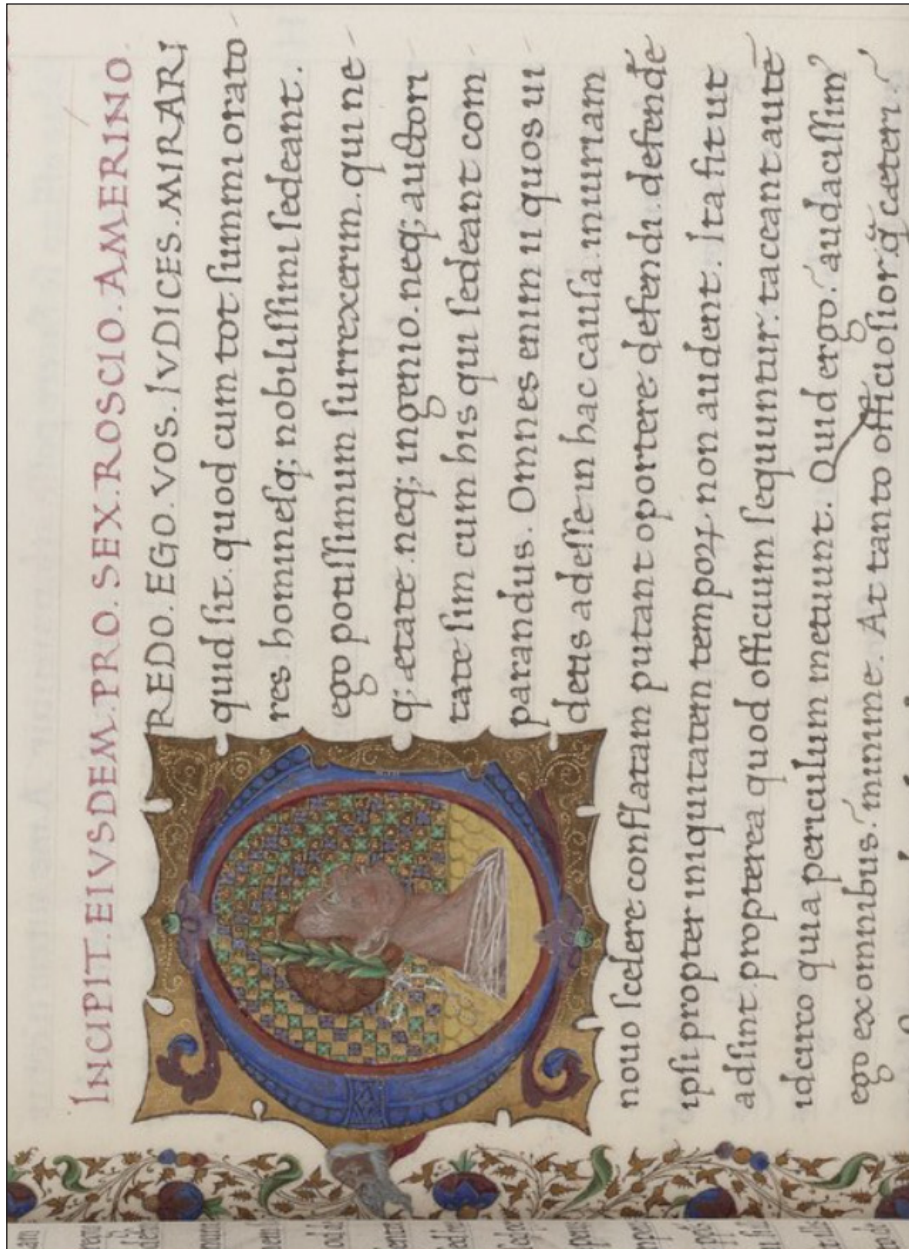 INCIPIT.EIVSDEM.PRO.SEX.ROSCIO.AMERINO.
REDO.EGO.VOS.IVDICES.MIRARI
quid ſit. quod cum tot ſummi orato
res homineſq; nobiliſſimi ſedeant.
ego potiſſimum ſurrexerim. qui ne
q; etate. neq; ingenio. neq; auctori
tate ſim cum his qui ſedeant com
parandus. Omnes enim ii quos ui
detis adeſſe in hac cauſa. iniuriam
nouo ſcelere conflatam putant oportere defendi. defende
ipſi propter iniquitatem tempoꝝ. non audent. Ita fit ut
adſint. propterea quod officium ſequuntur. taceant autē
idcirco quia periculum metuunt. Quid ergo. audaciſſim᾽
ego ex omnibus. minime. At tanto officioſior. q̄ ceteri.